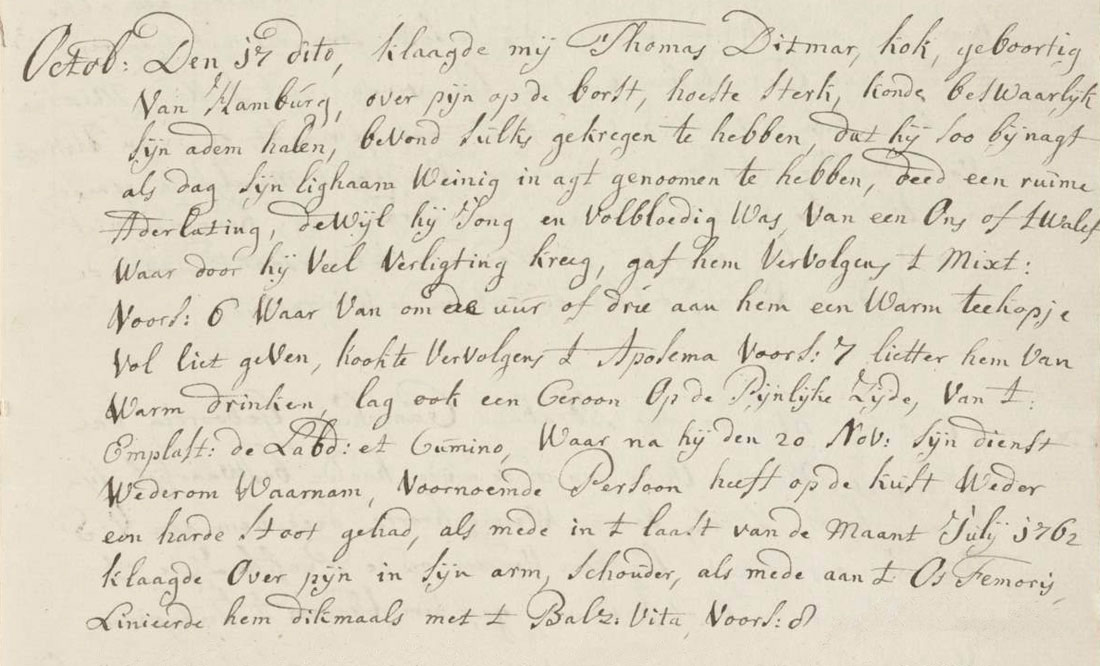 Octob: Den 17 dito, klaagde mij Thomas Ditmar, kok, geboortig
Van Hamburg, over pijn op de borst, hoeste sterk, konde beswaarlijk
sijn adem halen, bevond sulks gekregen te hebben, dat hij soo bij nagt
als dag sijn lighaam Weinig in agt genoomen te hebben, deed een ruime
Aderlating, deWijl hij Jong en volbloedig Was, Van een Ons of twalef
Waar door hij Veel Verligting kreeg, gaf hem Vervolgens t Mixt:
Voors: 6 Waar Van om de uur of drie aan hem een Warm teekopje
Vol liet geven, kookte Vervolgens t Aposema Voors: 7 liet hem Van
Warm drinken, lag ook een Ceroon Op de Pijnlijke Zijde, Van t:
Emplast: de Labd: et Cumino, Waar na hij den 20 Nov: sijn dienst
Wederom Waarnam, Voornoemde Persoon heeft op de kust Weder
een harde stoot gehad, als mede in t laast van de Maant July 1762
klaagde Over pijn in sijn arm, schouder, als mede aan t Os Femoris,
Linieerde hem dikmaals met t Balz: Vita, Voors: 8